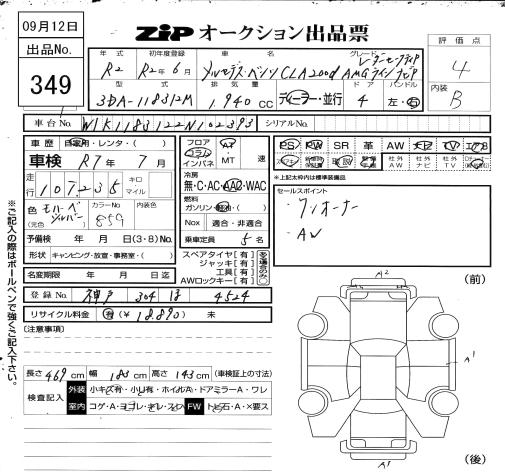 09月12日
ZIP オークション出品票
出品No.
349
年式 初年度登録 車名 グレード
R2 R2年6月 メルセデス・ベンツ CLA200d AMGライン
評価点
4
型式 排気量 ドア ハンドル
3DA-118312M 1,940 CC ディーラー・並行 4 左・右
内装
B
車台No. W1K1183122N102393 シリアルNo.
車歴 自家用・レンタ・( )
フロア AT
コラム MT 速
インパネ
PS PW SR 革 AW TV
車検 R7年 7月
※上記太枠内は標準装備品
走行 107,235 キロ マイル
冷房
無・C・AC・AAC・WAC
セールスポイント
・ワンオーナー
・AW
色 モハーベシルバー カラーNo. 859 内装色
(元色)
燃料
ガソリン・軽油・( )
Nox 適合・非適合
予備検 年 月 日(3・8)No.
乗車定員 5名
形状 キャンピング・放宣・事務室・( )
スペアタイヤ[有]
ジャッキ[有]
工具[有]
AWロックキー[有]
名変期限 年 月 日迄
登録No. 神戸 304 は 4524
リサイクル料金 有(¥18,890) 未
(注意事項)
※ご記入の際はボールペンで強くご記入下さい。
(前)
A2
A1
長さ 469cm 幅 183cm 高さ 143cm (車検証上の寸法)
検査記入 外装 小キズ有・小凹有・ホイルA・ドアミラーA・ワレ
室内 コゲ・A・ヨゴレ・キレ・スレ FW トビ石・A・×要ス
A1
(後)